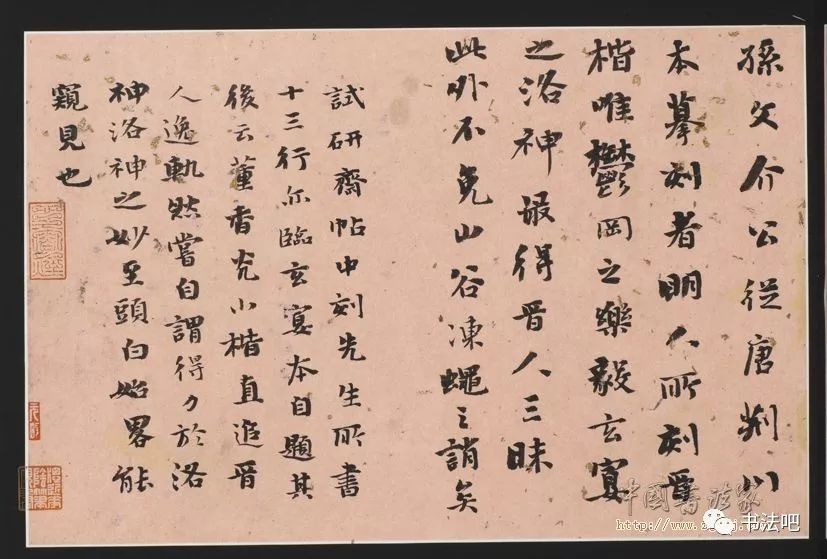 孫文介公從唐荆川
本摹刻者明人所刻晋
楷唯鬱岡之樂毅玄宴
之洛神最得晋人三昧
此外不免山谷凍蠅之誚矣
試硏齋帖中刻先生所書
十三行亦臨玄宴本自題其
後云董香光小楷直追晋
人逸軌然嘗自謂得力於洛
神洛神之妙至頭白始畧能
窺見也
中國書法家
书法吧